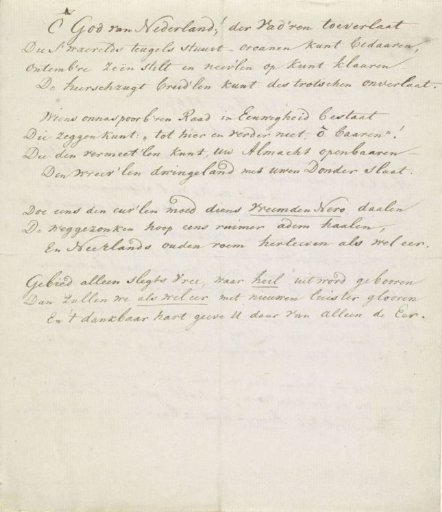 ô God van Nederland! der Vad'ren toeverlaat
Die 's waerelds teugels stuurt - orcanen kunt bedaaren,
Ontembre zeën stelt en nev'len op kunt klaaren
De heerschzugt breid'len kunt des trotschen onverlaat.
Wiens onnaspoorb'ren Raad in Eeuwigheid bestaat
Die zeggen kunt: „tot hier en verder niet, ô baaren"!
Die den vermeet'len kunt, uw Almacht openbaaren
Den wreev'len dwingeland met uwen Donder slaat.
Doe eens den euv'len moed diens vreemden Nero daalen
De weggezonken hoop eens ruimer adem haalen,
En Neêrlands ouden roem herleeven als wel eer.
Gebied alleen slegts Vreê, waar heil uit word gebooren
Dan zullen we als wel eer met nieuwen luister glooren
En 't dankbaar hart geeve U daar van alleen de Eer.